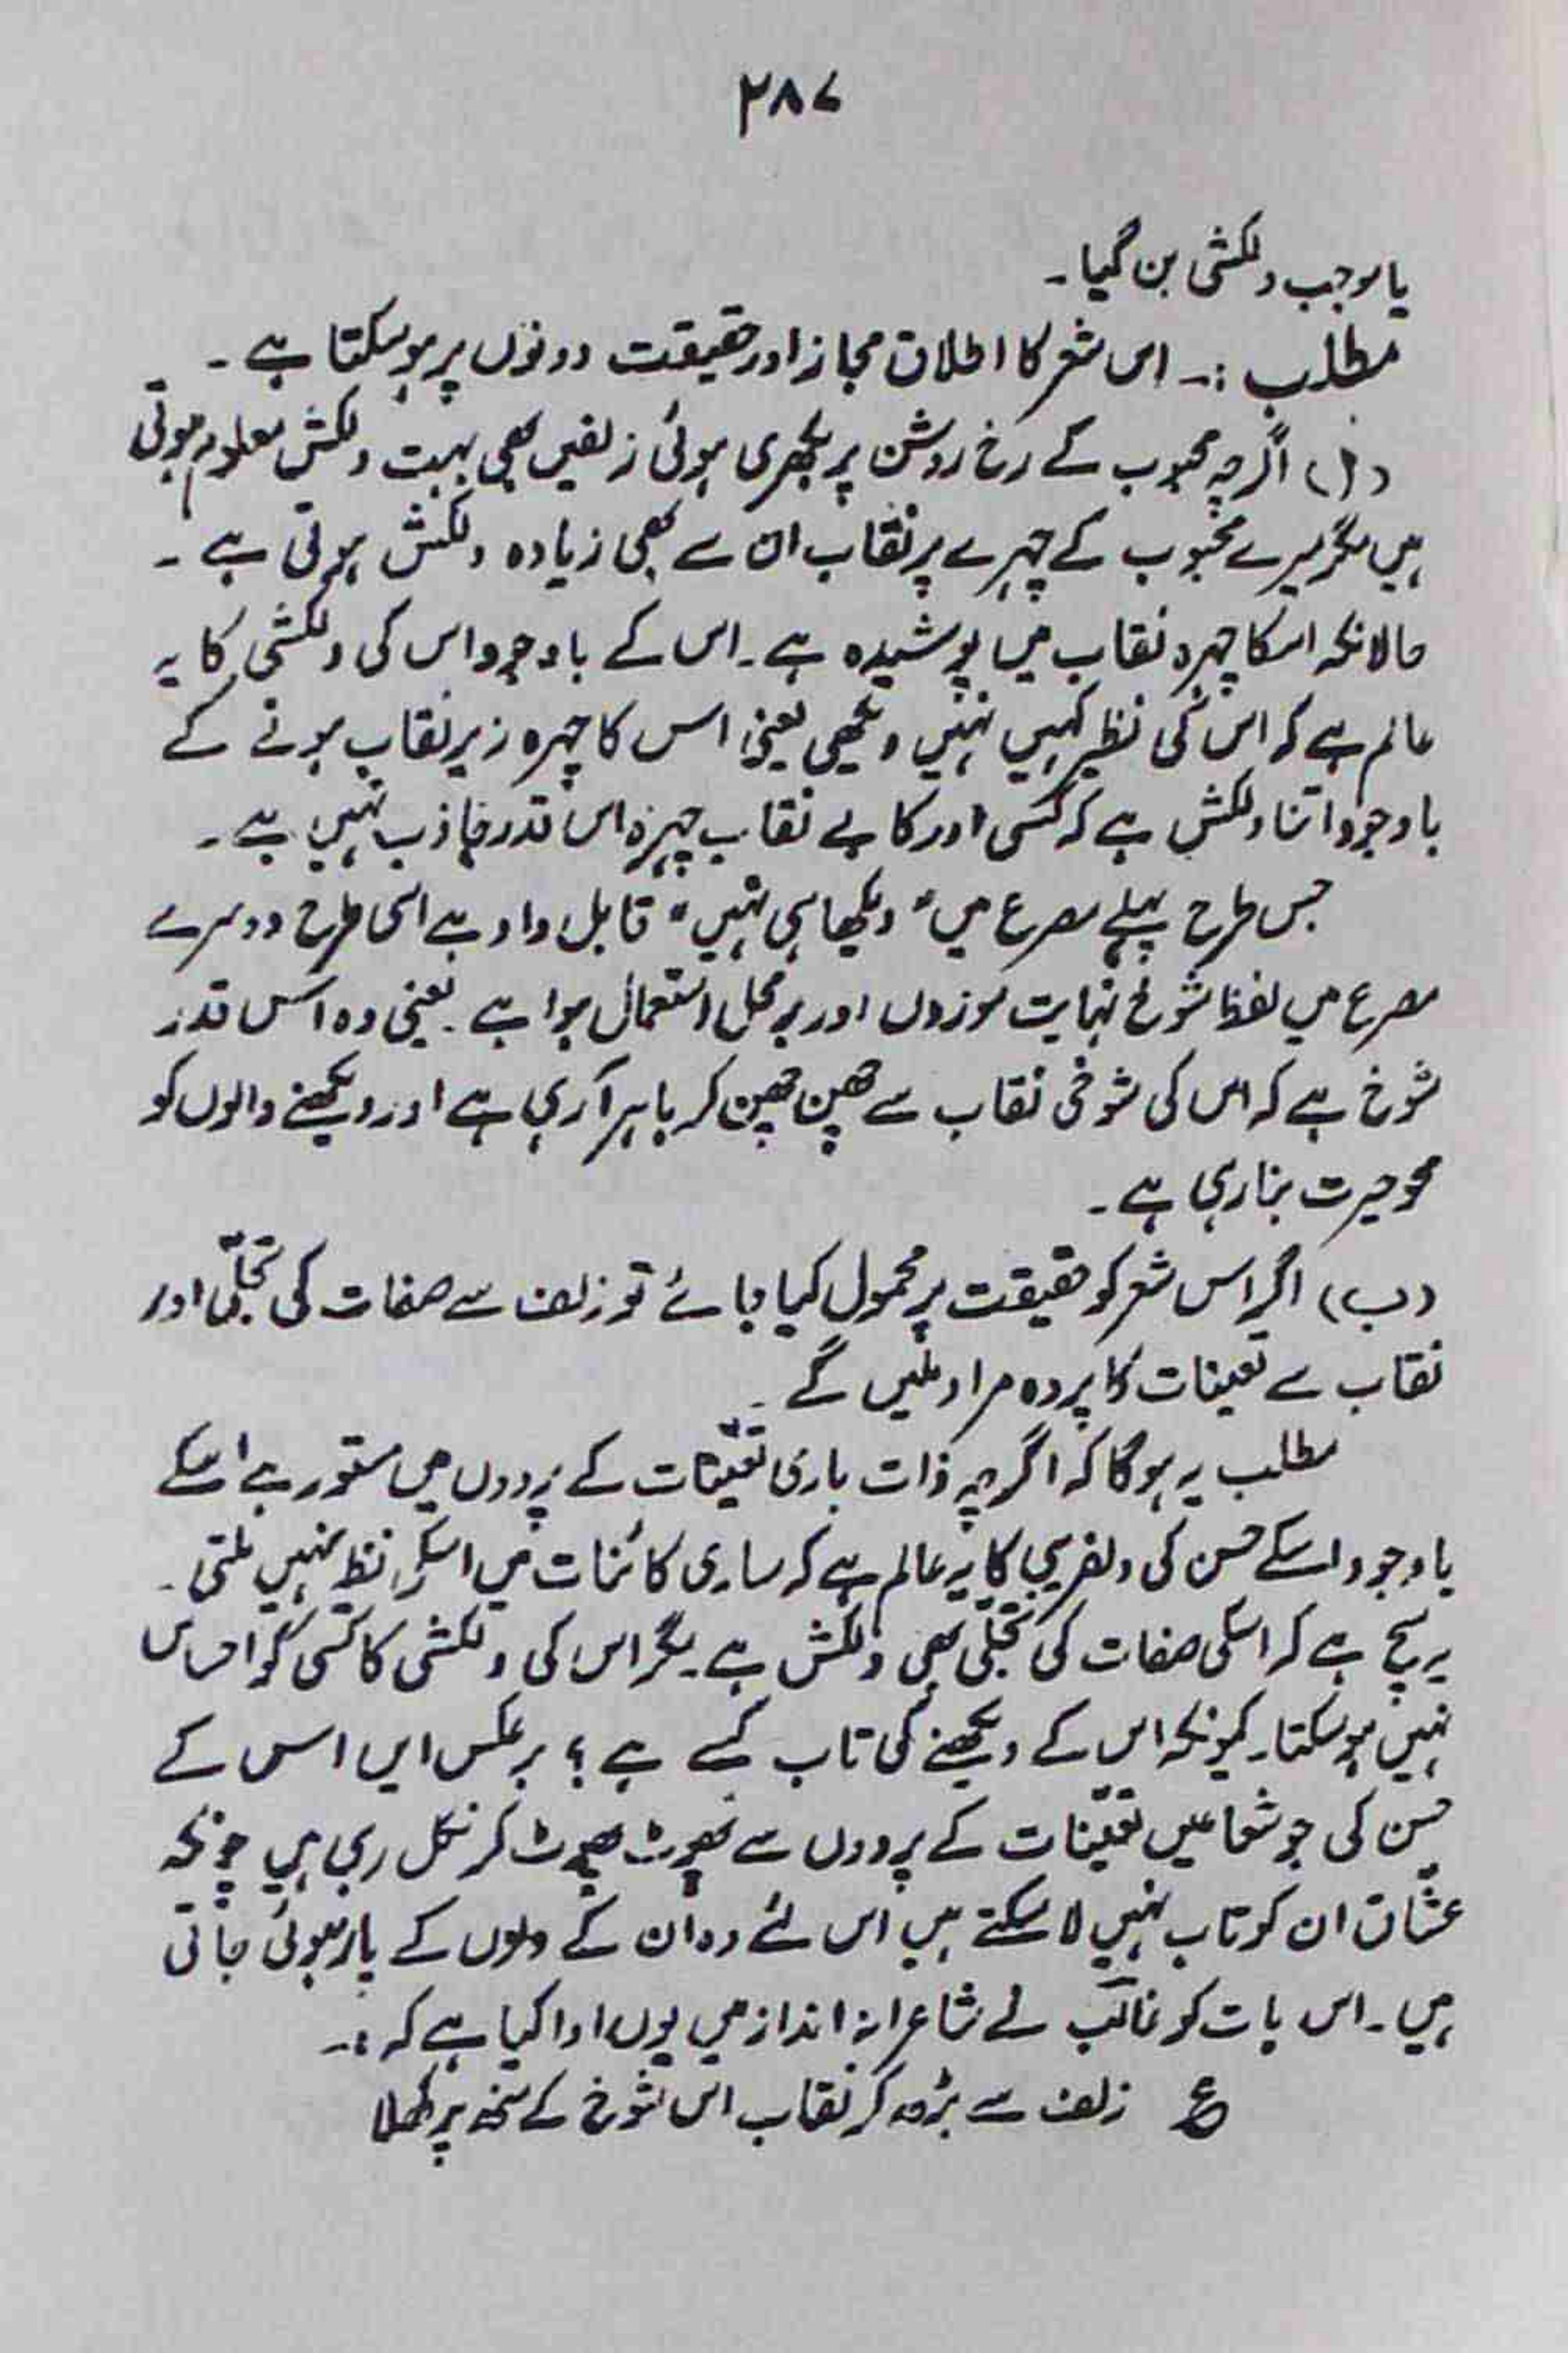 ۲۸۷
یا موجب دلکشی بن گیا۔
مطلب :۔ اس شعر کا اطلاق مجاز اور حقیقت دونوں پر ہو سکتا ہے ۔
(ا) اگرچہ محبوب کے رخ روشن پر بکھری ہوئی زلفیں بھی بہت دلکش معلوم ہوتی
ہیں مگر میرے محبوب کے چہرے پر نقاب ان سے بھی زیادہ دلکش ہوتی ہے ۔
حالانکہ اسکا چہرہ نقاب میں پوشیدہ ہے۔ اس کے باوجود اس کی دلکشی کا یہ
عالم ہے کہ اس کی نظیر کہیں نہیں دیکھی یعنی اس کا چہرہ زیر نقاب ہونے کے
باوجود اتنا دلکش ہے کہ کسی اور کا بے نقاب چہرہ اس قدر جاذب نہیں ہے ۔
جس طرح پہلے مصرع میں "دیکھا ہی نہیں" قابل داد ہے اسی طرح دوسرے
مصرع میں لفظ شوخ نہایت موزوں اور برمحل استعمال ہوا ہے ۔ یعنی وہ اس قدر
شوخ ہے کہ اس کی شوخی نقاب سے چھن چھن کر باہر آ رہی ہے اور دیکھنے والوں کو
محو حیرت بنا رہی ہے ۔
(ب) اگر اس شعر کو حقیقت پر محمول کیا جائے تو زلف سے صفات کی تجلّی اور
نقاب سے تعینات کا پردہ مراد لیں گے ۔
مطلب یہ ہوگا کہ اگرچہ ذات باری تعیّنات کے پردوں میں مستور ہے اسکے
باوجود اسکے حسن کی دلفریبی کا یہ عالم ہے کہ ساری کائنات میں اسکی نظیر نہیں ملتی ۔
یہ سچ ہے کہ اسکی صفات کی تجلّی بھی دلکش ہے۔ مگر اس کی دلکشی کا کسی کو احساس
نہیں ہو سکتا۔ کیونکہ اس کے دیکھنے کی تاب کسے ہے ؟ برعکس ایں اس کے
حسن کی جو شعاعیں تعیّنات کے پردوں سے پھوٹ پھوٹ کر نکل رہی ہیں چونکہ
عشّاق ان کو تاب نہیں لا سکتے ہیں اس لئے وہ ان کے دلوں کے پار ہوئی جاتی
ہیں۔ اس بات کو غالب نے شاعرانہ انداز میں یوں ادا کیا ہے کہ :۔
ع زلف سے بڑھ کر نقاب اس شوخ کے منہ پر کھلا